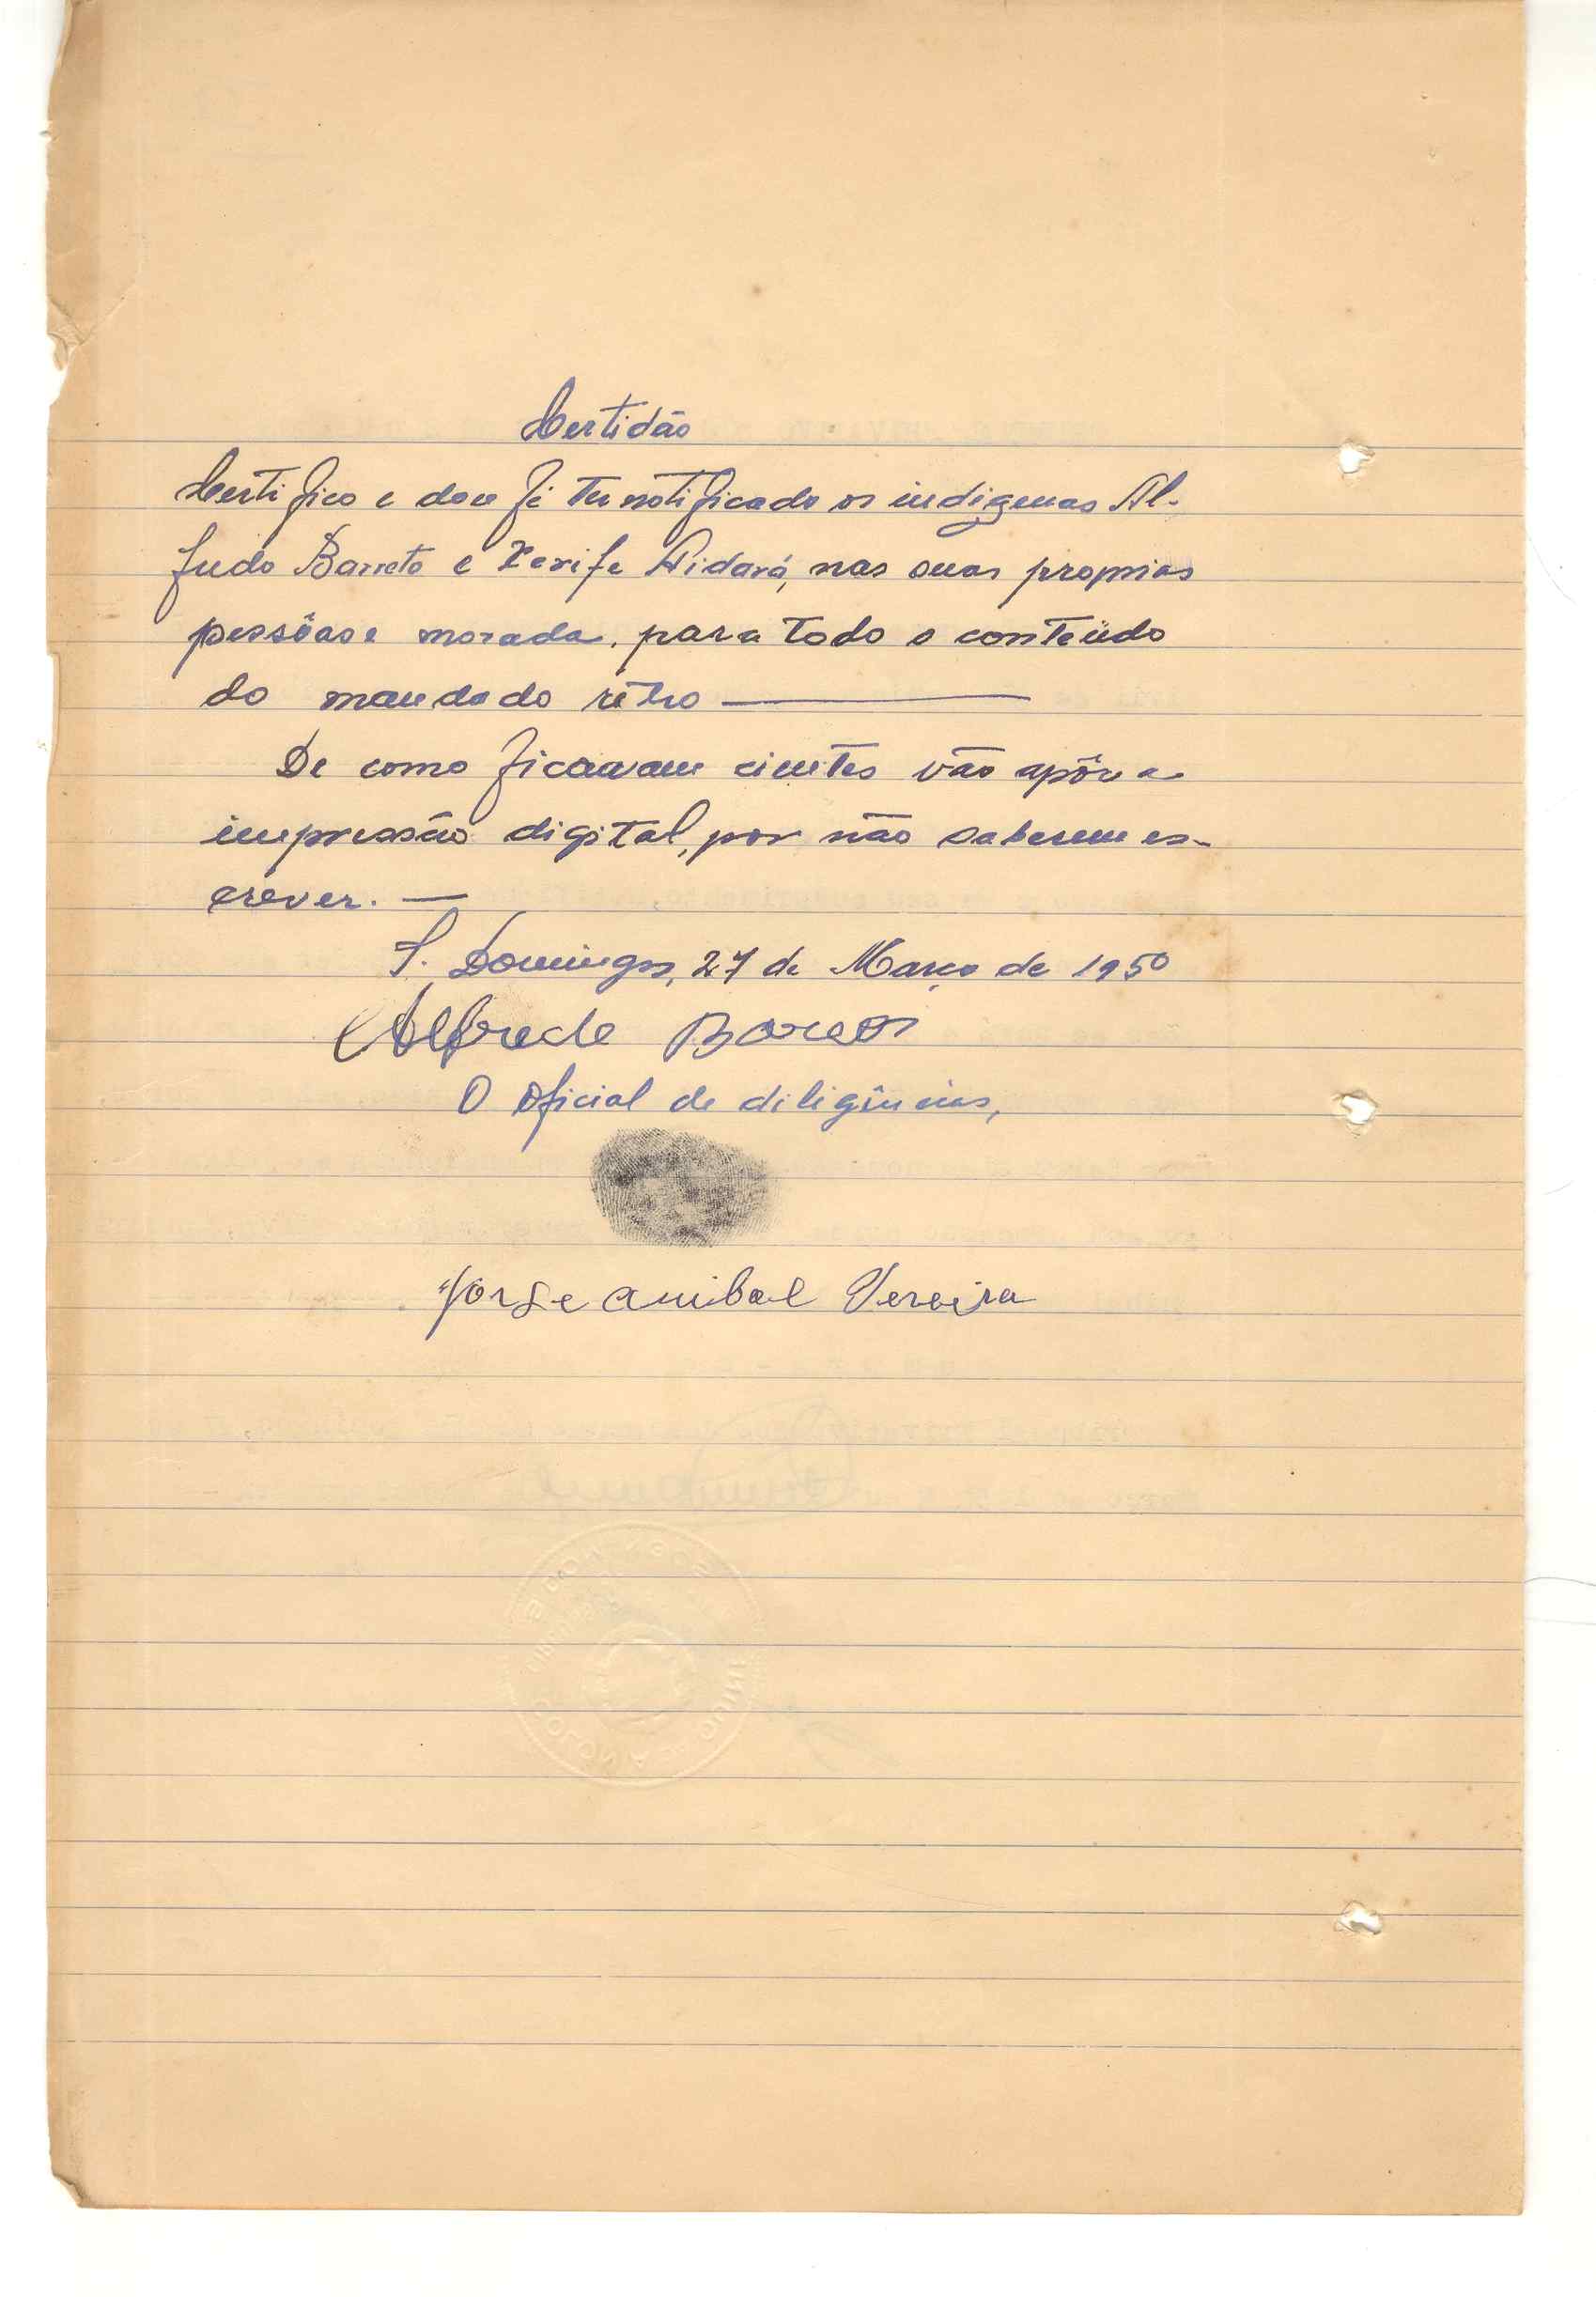 Certidão
Certifico e dou fé ter notificado os indigenas Al-
fredo Barreto e Xerife Aidará, nas suas proprias
pessôas e morada, para todo o conteúdo
do mandado rétro
De como ficavam cientes vão apôr a
impressão digital, por não saberem es-
crever. —
S. Domingos, 27 de Março de 1950
Alfrede
O Oficial de diligências,
Jorge anibal Pereira